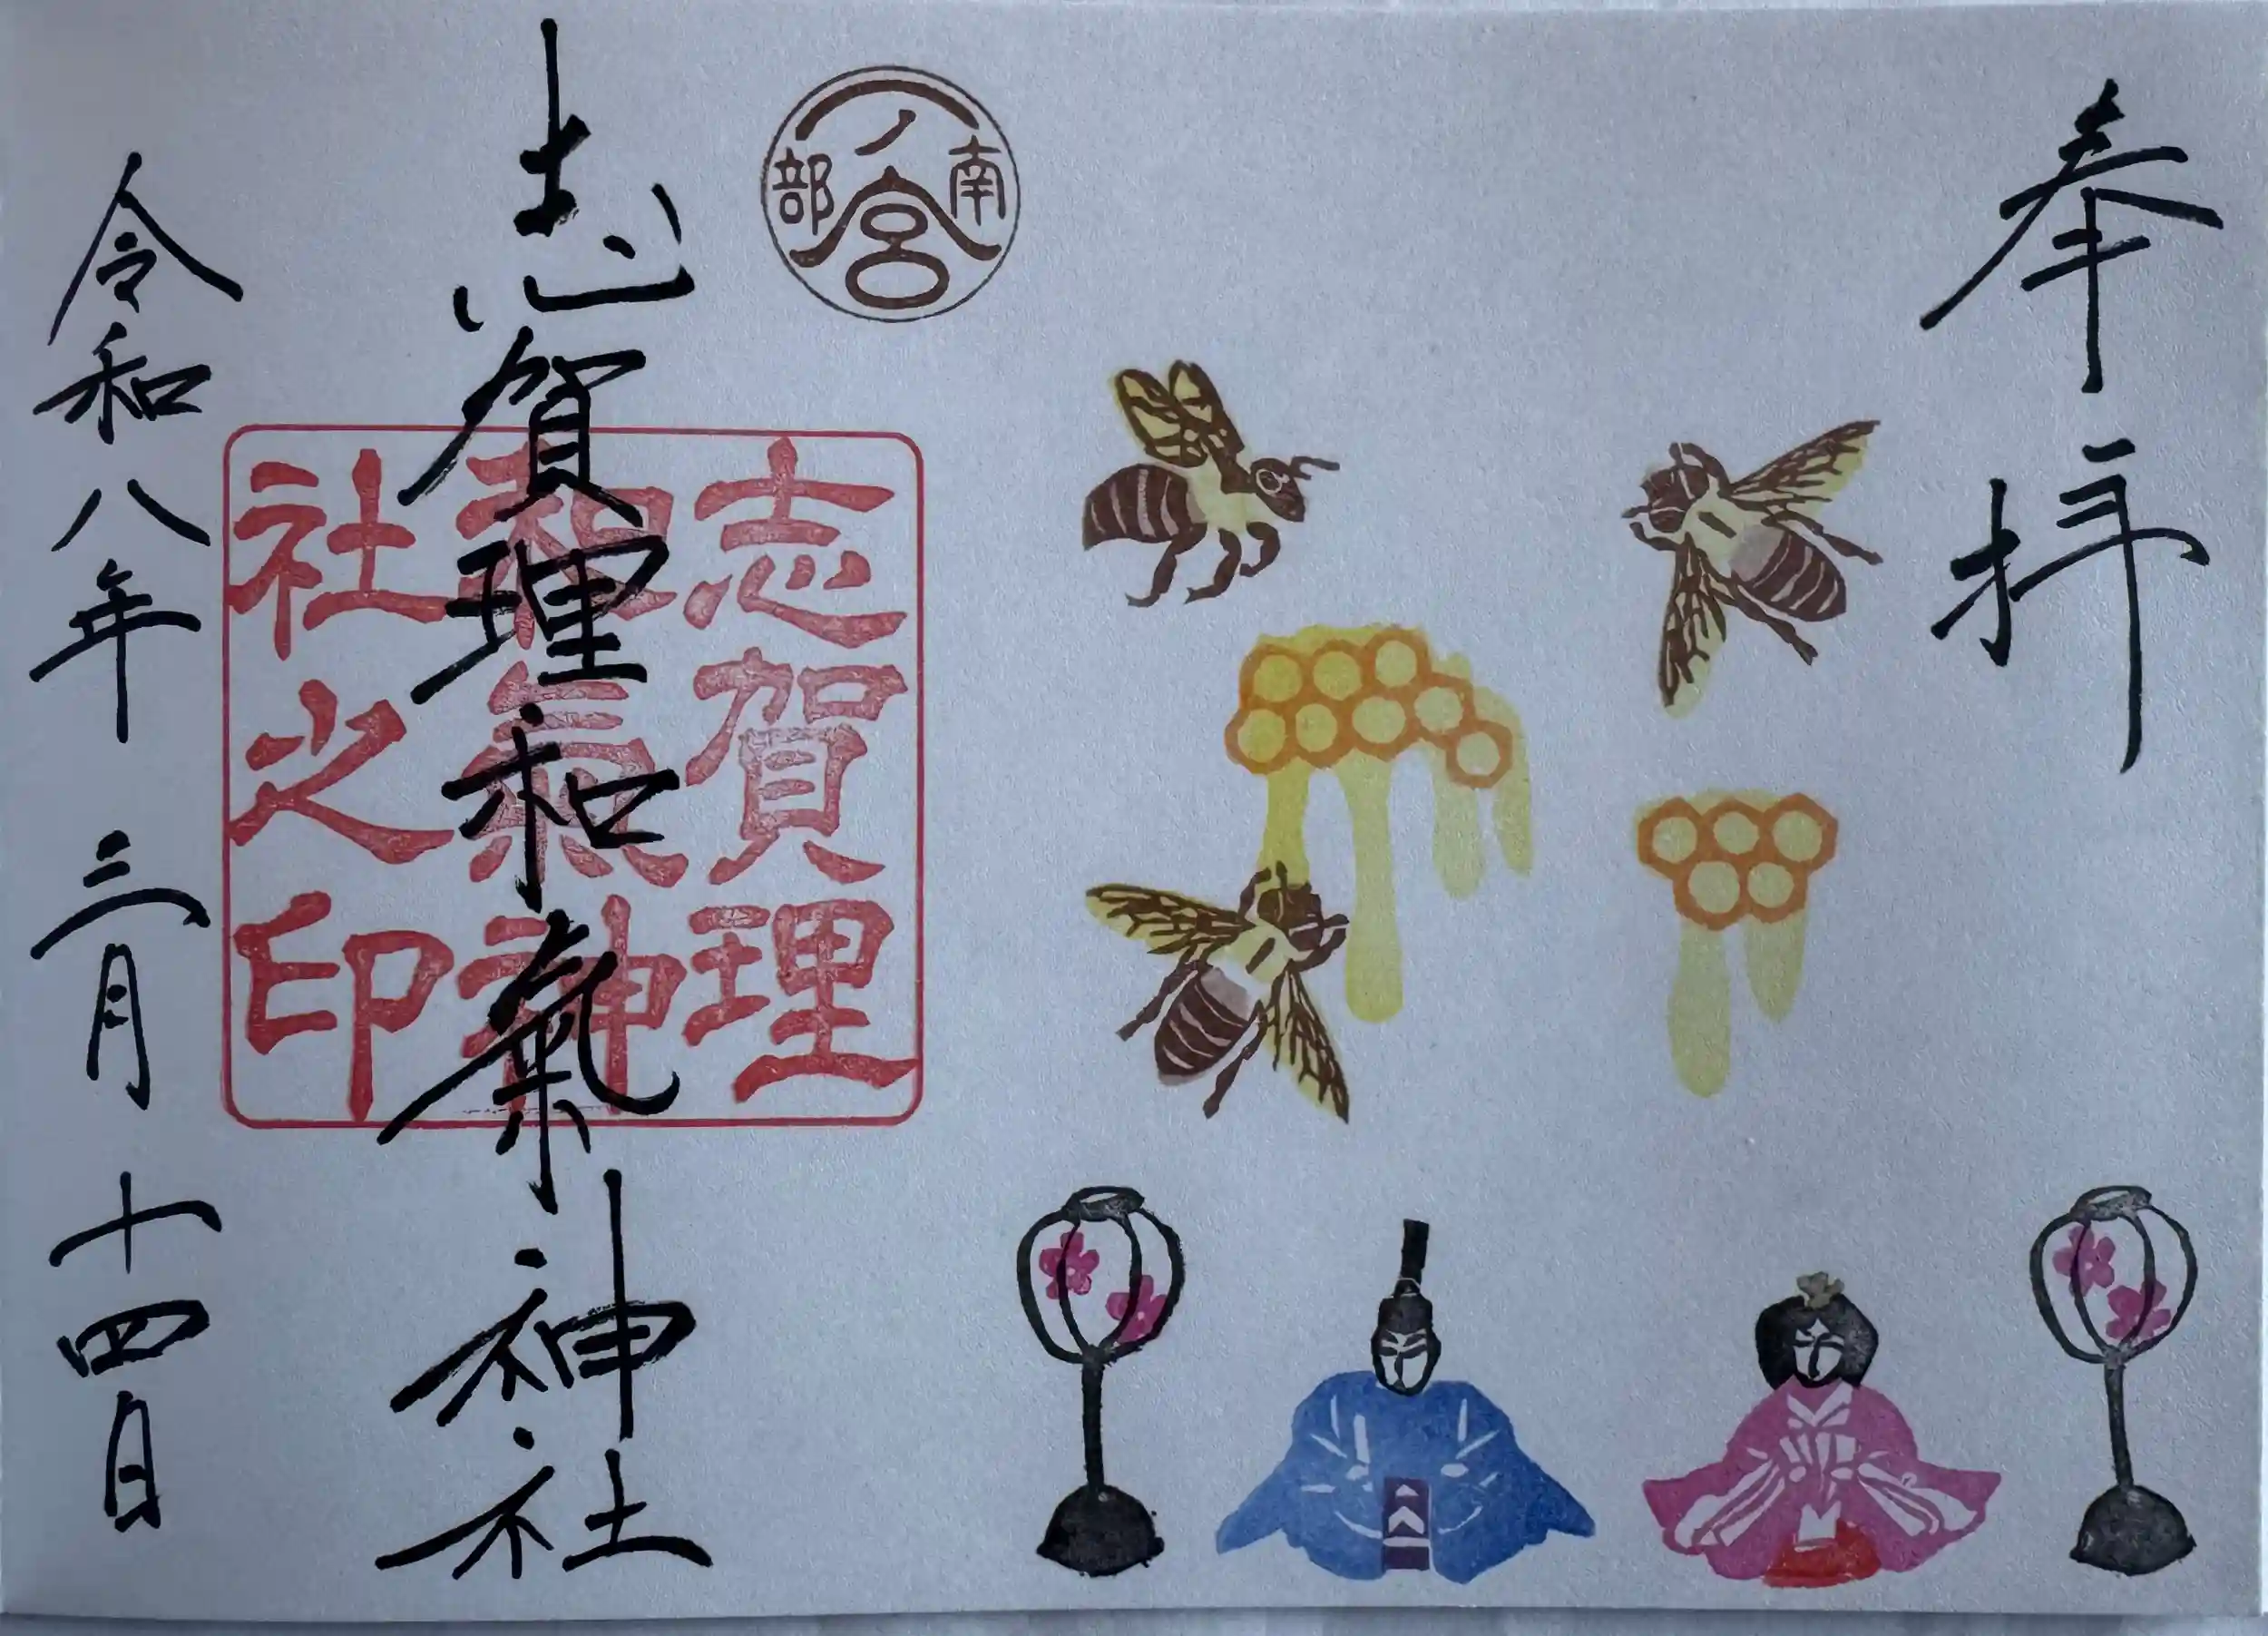 奉拝
南部一ノ宮
志賀理和氣神社
志賀理
和氣神
社之印
令和八年三月十四日